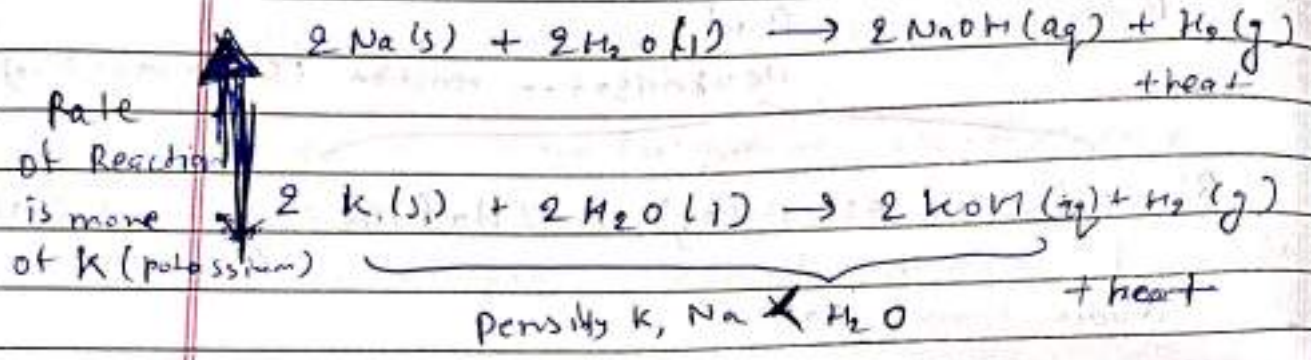 2 Na (s) + 2H₂O (l) → 2 NaOH (aq) + H₂ (g)
+ heat
Rate
of Reaction
is more
of K (potassium)
2 K (s) + 2 H₂O (l) → 2 KOH (aq) + H₂ (g)
+ heat
Density K, Na < H₂O